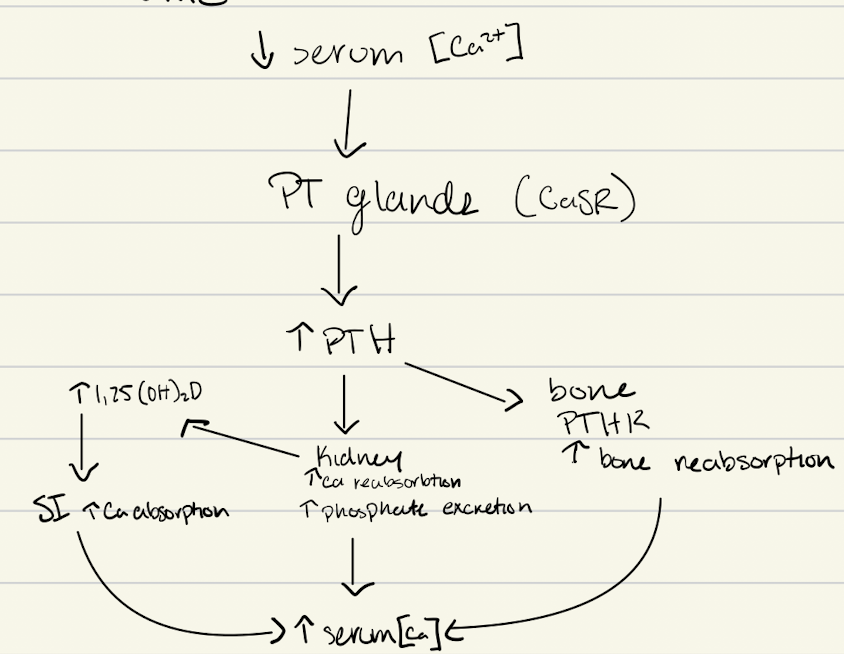 ↓ serum [Ca²⁺]
PT glands (CaSR)
↑ PTH
↑ 1,25(OH)₂D
bone
PTHR
↑ bone reabsorption
Kidney
↑ Ca reabsorbtion
↑ phosphate excretion
SI ↑ Ca absorption
↑ serum [Ca]